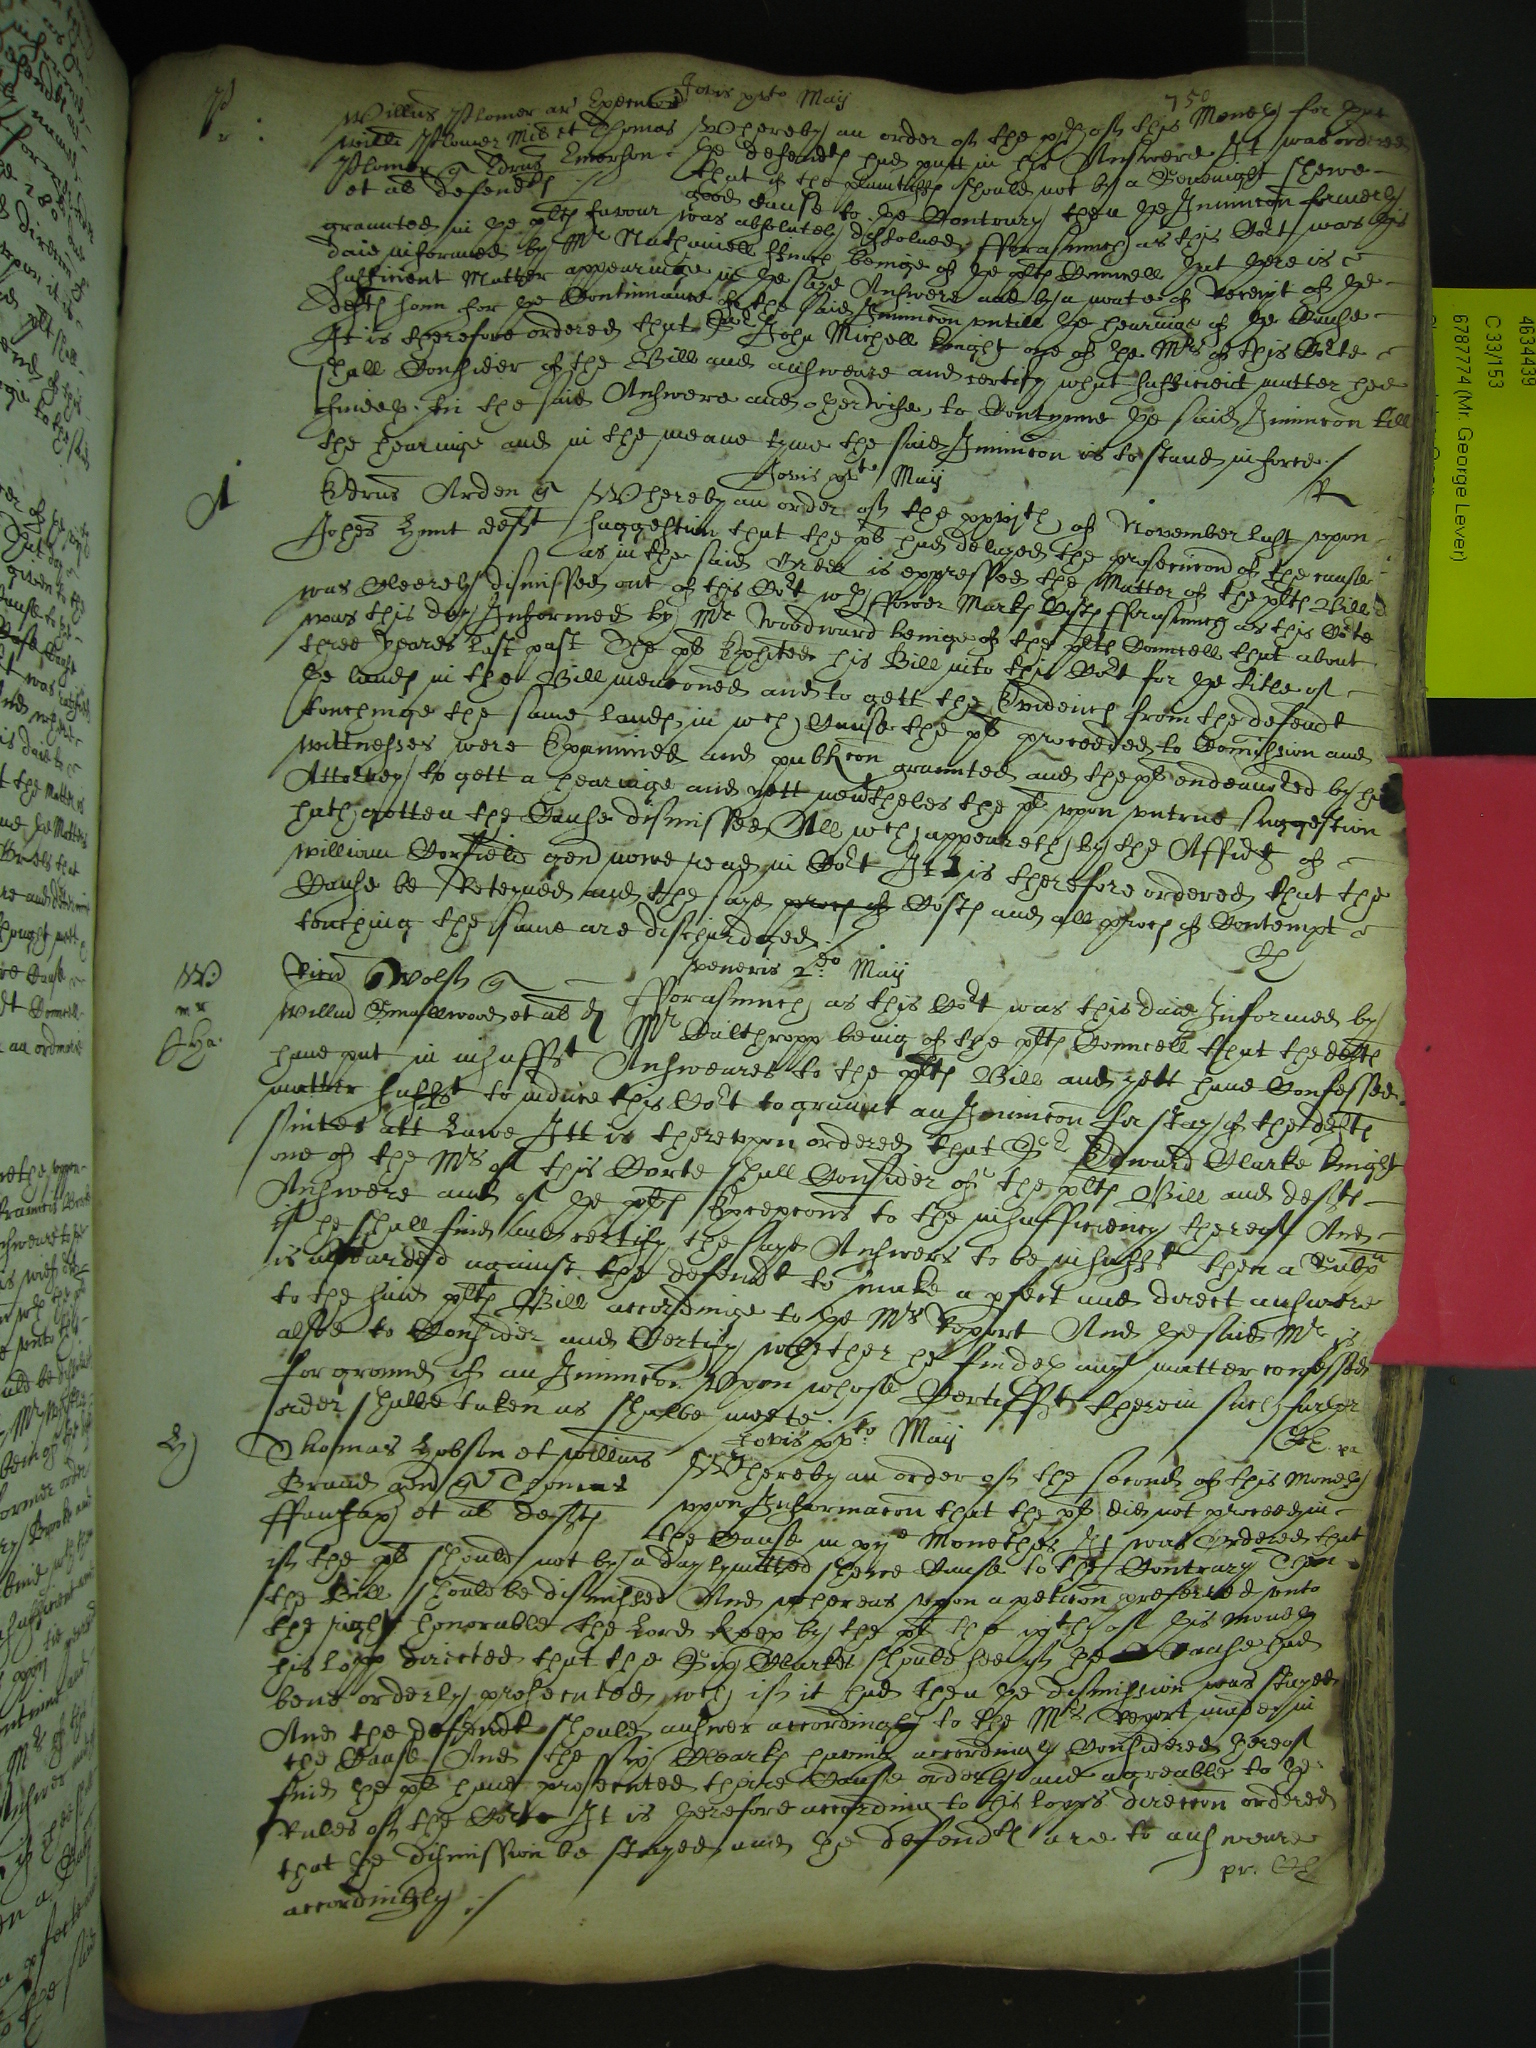 Jovis primo May
750
P
Willus Plomer ar Executor
Willi Plomer Mil et Thomas Whereby an order of the of this Moneth for
Plomer q Edrus Emerson the defendts had putt in his Answere It was ordered
et al defendts that if the plaintiffs should not by a Sevenight shewe
good cause to ye Contrary then ye Iniunccon formerly
graunted in ye plts favour was absolutely dissolved fforasmuch as this Cort was this
daie informed by Mr Nathaniell ffinch beinge of ye plts Councell that there is
sufficient Matter appearinge in ye said Answere and by a noate of Receipt of ye
defts hom for ye Continuance of the said Iniunccon untill ye hearinge of ye Cause
It is therefore ordered that Sr John Michell knight one of ye Mrs of this Corte
shall Consider of the Bill and answeare and certify what sufficient matter hee
findeth in the said Answere and otherwise to Contynue ye said Iniunccon till
the hearinge and in the meane tyme the said Iniunccon is to stand in force
A
Jovis primo May
Edrus Arden q Whereby an order of the of November last upon
Johes Hunt deft suggestion that the pl had delayed the prosecucon of the cause
as in the said Order is expressed the Matter of the plts Bill
was Cleerely dismissed out of this Cort wth ffower Marks Costs fforasmuch as this Corte
was this day Informed by Mr Woodward beinge of the plts Councell that about
three yeares last past the pl Exhited his Bill into this Cort for ye title of
ye lands in the Bill mencioned and to gett the Evidences from the defendt
touchinge the same lands in wch Cause the pl proceeded to Comission and
wittnesses were Examined and publicon graunted and the pl endeavored by his
Attorney to gett a hearinge and yett nevertheles the upon untrue suggestion
hath gotten the Cause dismissed All wch appeareth by the Affidt of
William gent nowe read in Cort It is therefore ordered that the
Cause be Reteyned and the said Costs and all proces of Contempt
touching the same are discharged
W
Veneris 2do May
Ricus q fforasmuch as this Cort was this daie Informed by
Willm Smallwood et al d Mr Calthropp being of the plts Councell that the defts
have put in insufft Answeares to the plts Bill and yett have Confessed
matter suffit to induce this Cort to graunt an Iniunccon for stay of the defts
suites att Lawe Itt is thereupon ordered that Sr Edward Clarke knight
one of the Mrs of this Corte shall Consider of the plts Bill and defts
Answere and of ye plts Excepcons to the insufficiency thereof And
if he shall find and certify the said Answers to be insufft then a Subpa
is awarded against the defendt to make a pfect and direct answere
to the said plts Bill accordinge to ye Mrs Report And ye said Mr is
alsoe to Consider and Certify whether he findeth any matter confessed
for ground of an Iniunccon Upon whose Certifft therein such further
order shalbe taken as shalbe meete
Jovis primo May
Thomas Hobson et Willms Whereby an order of the second of this Moneth
Brand gen q Thomas upon Informacon that the pl did not proceed in
ffanshaw et al defts the Cause in Monethes It was Ordered that
if the pl should not by a day lymitted shewe Cause to the Contrary Then
the Bill should be dismissed And whereas upon a peticon preferred unto
the right honorable the Lord keep by the pl the of this Moneth
his Lopp directed that the Six Clarkes should see if ye Cause had
bene orderly prosecuted wch if it had then ye dismission was stayed
And the defendt should answer accordingly to the Mrs Report made in
the Cause And the Six Clarks having accordingly Considered thereof
find ye pl have prosecuted theire Cause orderly and agreable to ye
Rules of the Corte It is therefore according to his Lopps direccon ordered
that ye dismission be stayed and ye defendts are to answeare
accordingly
C 33/153
6787774 (Mr. George Lever)
4634439